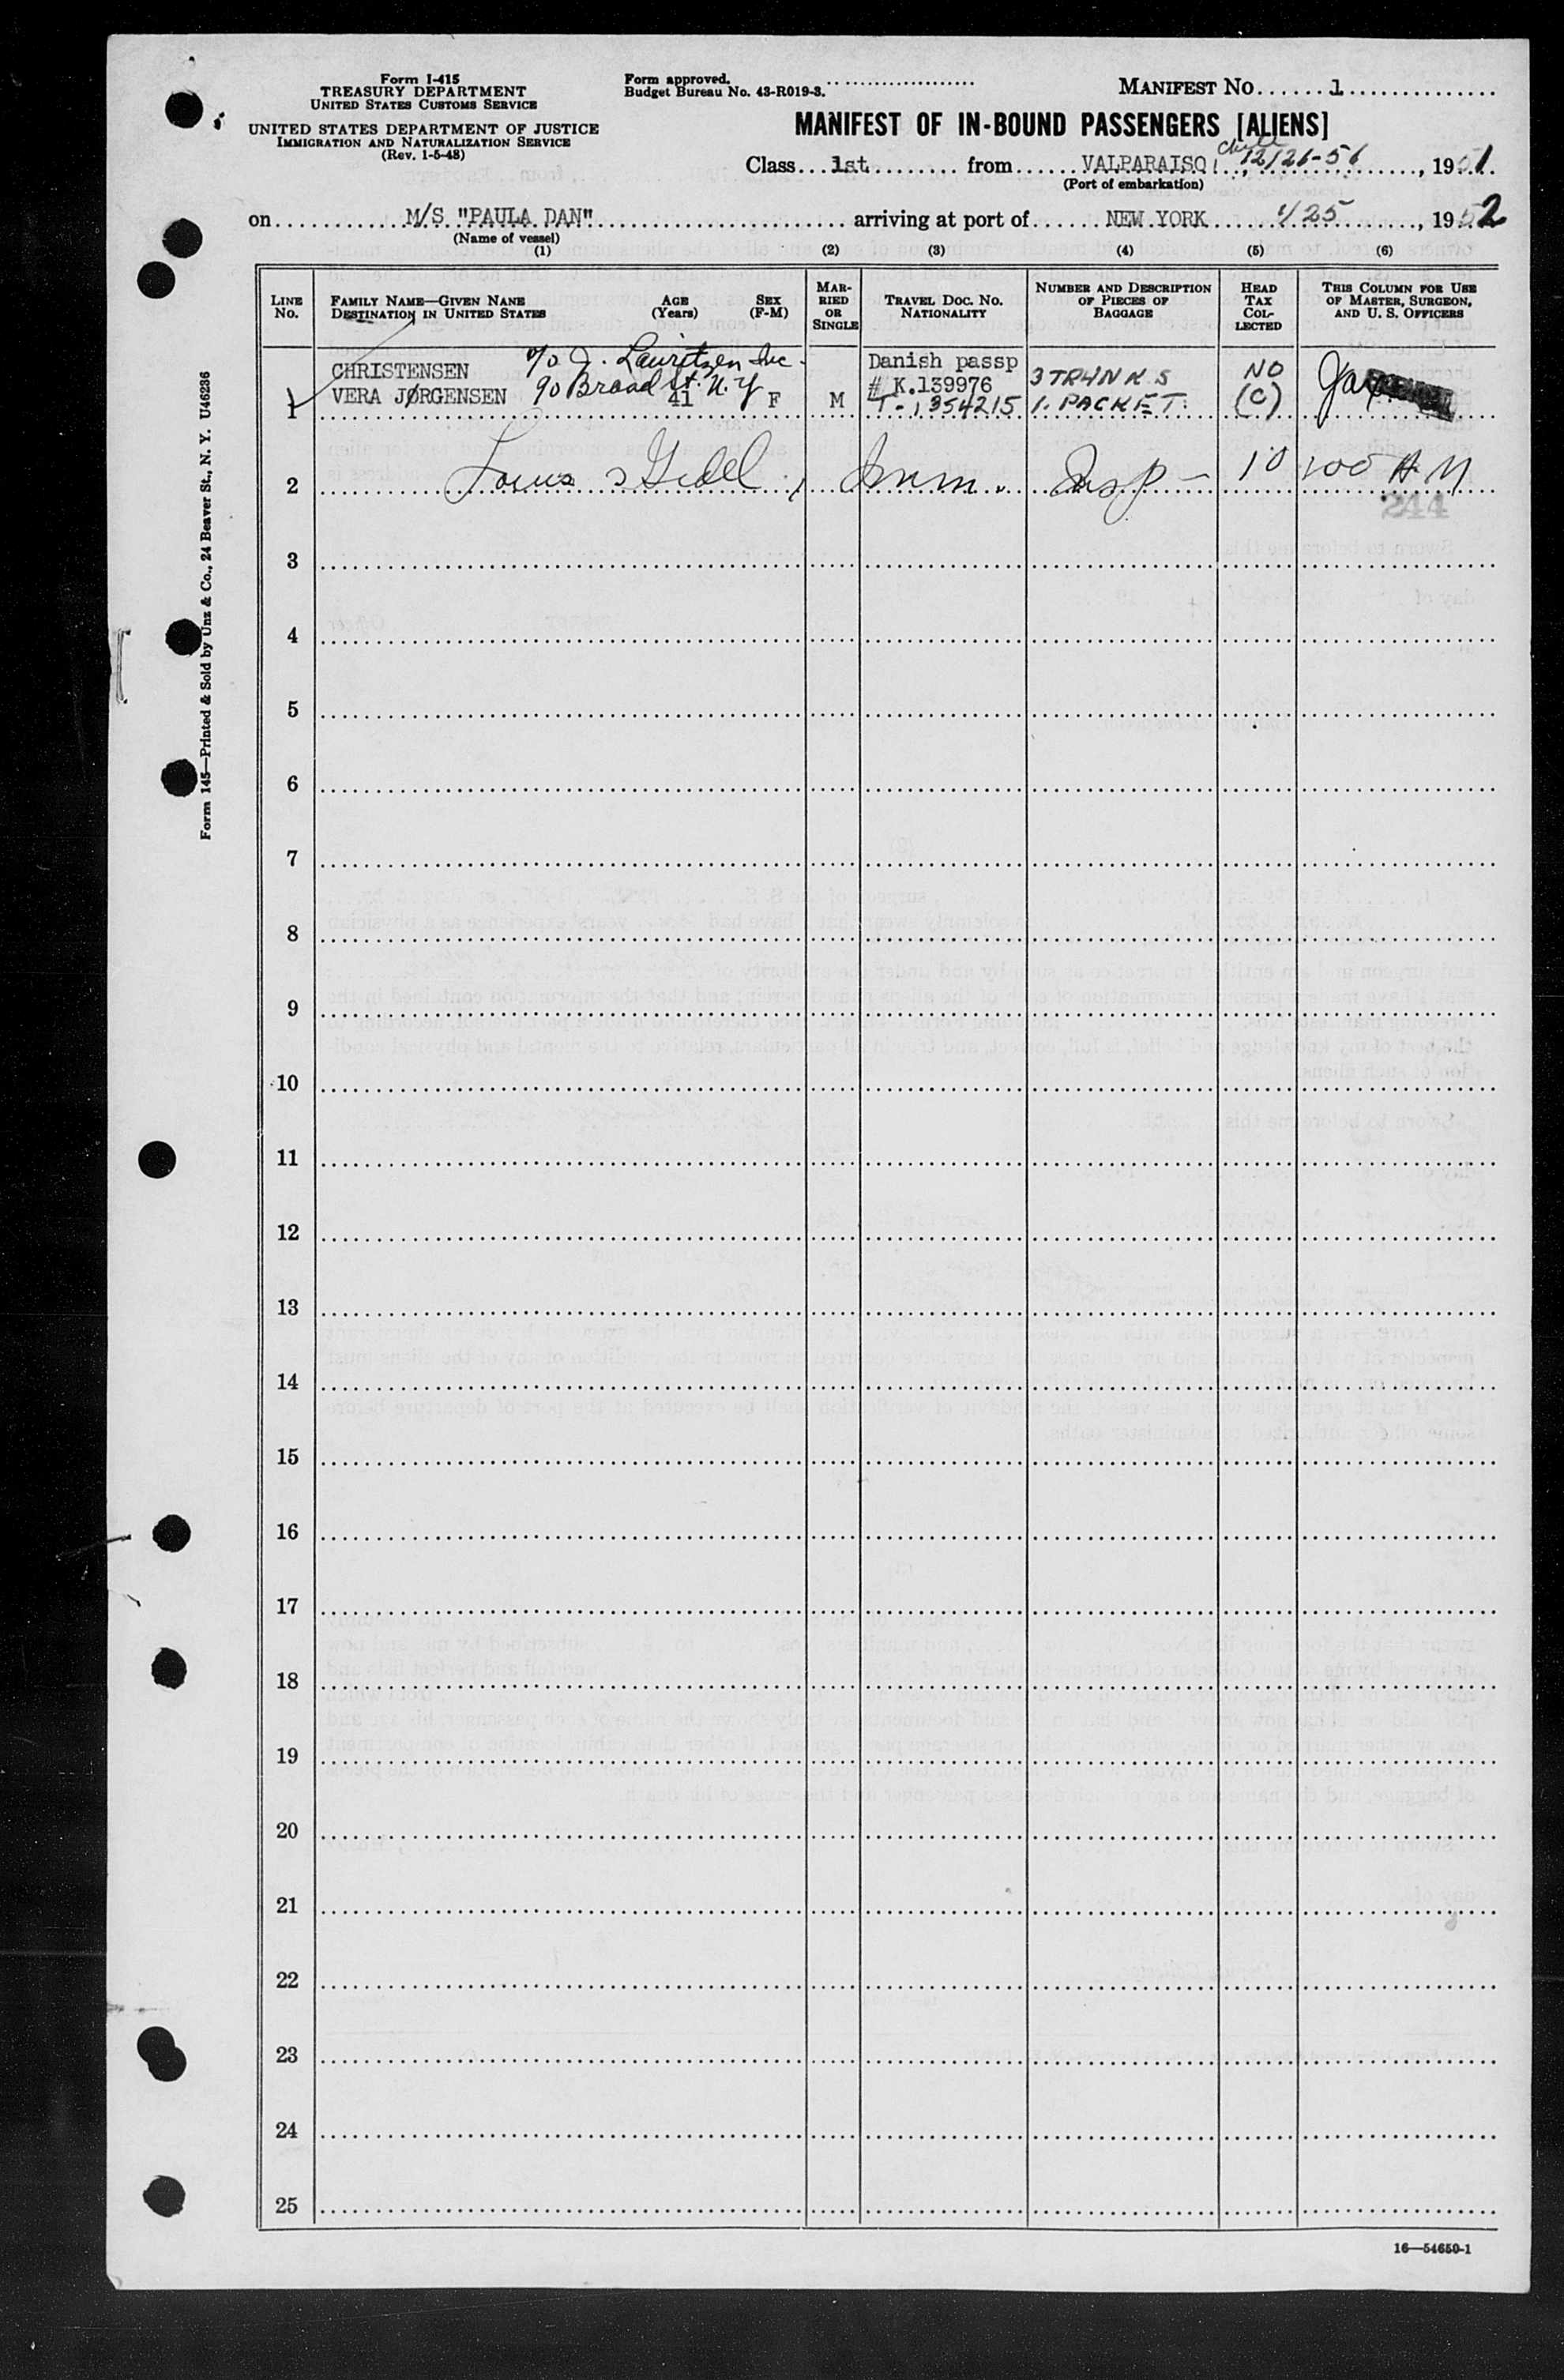 Form I-415
TREASURY DEPARTMENT
UNITED STATES CUSTOMS SERVICE
UNITED STATES DEPARTMENT OF JUSTICE
IMMIGRATION AND NATURALIZATION SERVICE
(Rev. 1-5-48)
Form approved.
Budget Bureau No. 43-R019-3.
MANIFEST NO. 1
MANIFEST OF IN-BOUND PASSENGERS [ALIENS]
Chile
Class 1st from VALPARAISO, 12/26-51, 1951
(Port of embarkation)
on M/S "PAULA DAN" arriving at port of NEW YORK 1/25, 1952
(Name of vessel)
(1) (2) (3) (4) (5) (6)
LINE NO.
FAMILY NAME—GIVEN NANE
DESTINATION IN UNITED STATES
AGE (Years)
SEX (F-M)
MARRIED OR SINGLE
TRAVEL DOC. NO. NATIONALITY
NUMBER AND DESCRIPTION OF PIECES OF BAGGAGE
HEAD TAX COLLECTED
THIS COLUMN FOR USE OF MASTER, SURGEON, AND U. S. OFFICERS
CHRISTENSEN c/o J. Lauritzen Inc. Danish passp 3 TRUNKS NO
1 VERA JØRGENSEN 90 Broad St. N.Y 41 F M # K.139976
T-1354215 1. PACKET. (C)
2 Imm. Insp 10
244
3
4
5
6
7
8
9
10
11
12
13
14
15
16
17
18
19
20
21
22
23
24
25
16—54650-1
Form 145—Printed & Sold by Unz & Co., 24 Beaver St., N. Y. U46236